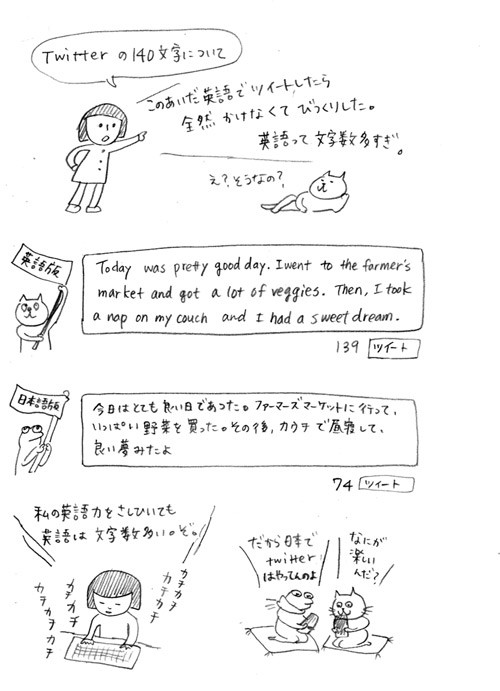 Twitter の140文字について
このあいだ英語でツイートしたら
全然かけなくてびっくりした。
英語って文字数多すぎ。
え?そうなの?
英語版
Today was pretty good day. I went to the farmer's
market and got a lot of veggies. Then, I took
a nap on my couch and I had a sweet dream.
139 ツイート
日本語版
今日はとても良い日であった。ファーマーズマーケットに行って、
いっぱい野菜を買った。その後、カウチで昼寝して、
良い夢みたよ
74 ツイート
私の英語力をさしひいても
英語は文字数多い。ぞ。
カチカチ
カチカチカチ
カチカチ
カチカチ
だから日本で
twitter
はやってんのよ
なにが
楽しい
んだ?